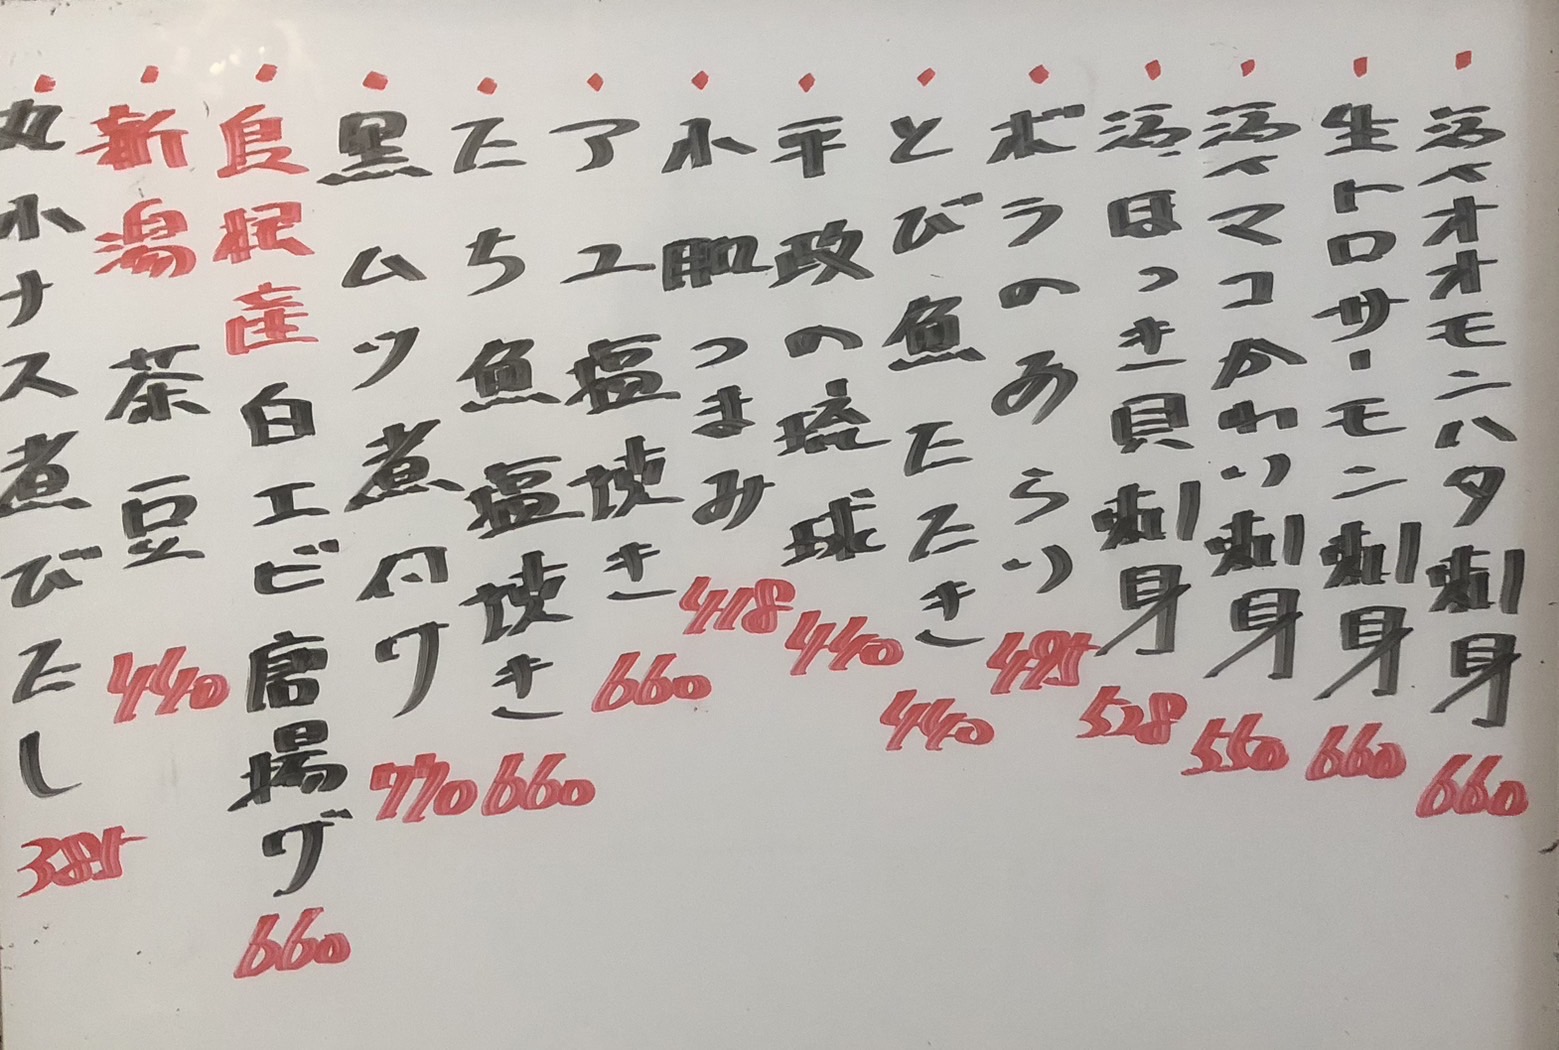 ・活〆オオモンハタ刺身 660
・生トロサーモン刺身 660
・活〆マコかれい刺身 550
・活ほっき貝刺身 528
・ボラのあらい 495
・とび魚たたき 440
・平政の琉球 440
・小肌つまみ 418
・アユ塩焼き 660
・たち魚塩焼き 660
・黒ムツ煮付ケ 770
・産白エビ唐揚ゲ 660
・新潟茶豆 440
・丸小ナス煮びたし 385